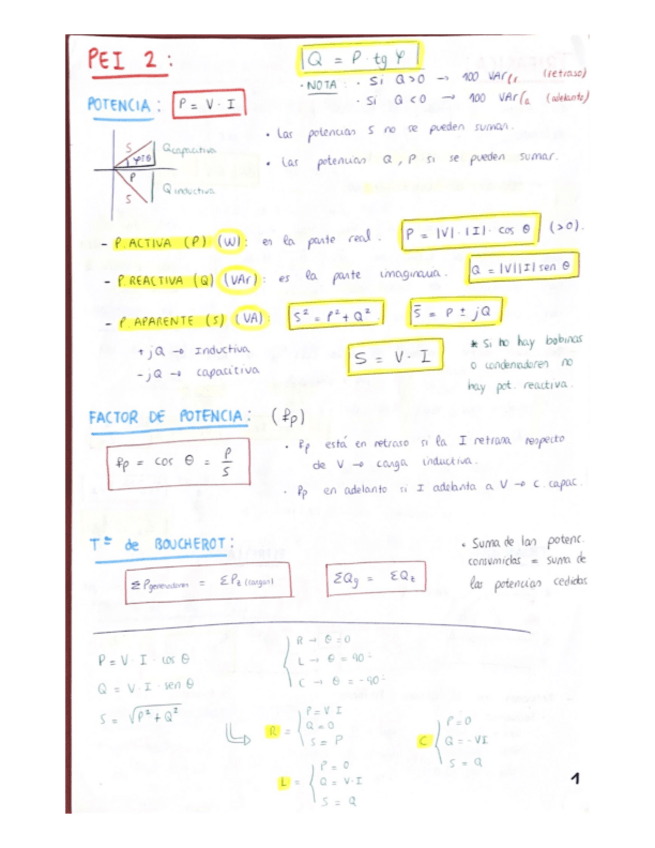 PEI 2 :
Q = P · tg φ
· NOTA : · Si Q>0 → 100 VAr(r (retraso)
· Si Q<0 → 100 VAr(a (adelanto)
POTENCIA : P = V · I
· Las potencias S no se pueden sumar.
· Las potencias Q , P si se pueden sumar.
S Qcapacitiva
P
S Qinductiva
- P. ACTIVA (P) (W) : es la parte real. P = |V| · |I| · cos θ (>0).
- P. REACTIVA (Q) (VAr) : es la parte imaginaria. Q = |V||I| sen θ
- P. APARENTE (S) (VA) : S² = P² + Q² S̄ = P ± jQ
+ jQ → Inductiva
- jQ → capacitiva
S = V · I
* Si no hay bobinas
o condensadores no
hay pot. reactiva.
FACTOR DE POTENCIA : (fp)
fp = cos θ = P/S
· fp está en retraso si la I retrasa respecto
de V → carga inductiva.
· fp en adelanto si I adelanta a V → C. capac.
Tª de BOUCHEROT :
Σ Pgeneradores = Σ Pz (cargas)
ΣQg = ΣQz
· Suma de las potenc.
consumidas = suma de
las potencias cedidas
P = V · I · cos θ
Q = V · I · sen θ
S = √P² + Q²
R → θ = 0
L → θ = 90º
C → θ = -90º
R = P = V · I
Q = 0
S = P
L = P = 0
Q = V · I
S = Q
C P = 0
Q = - VI
S = Q
1